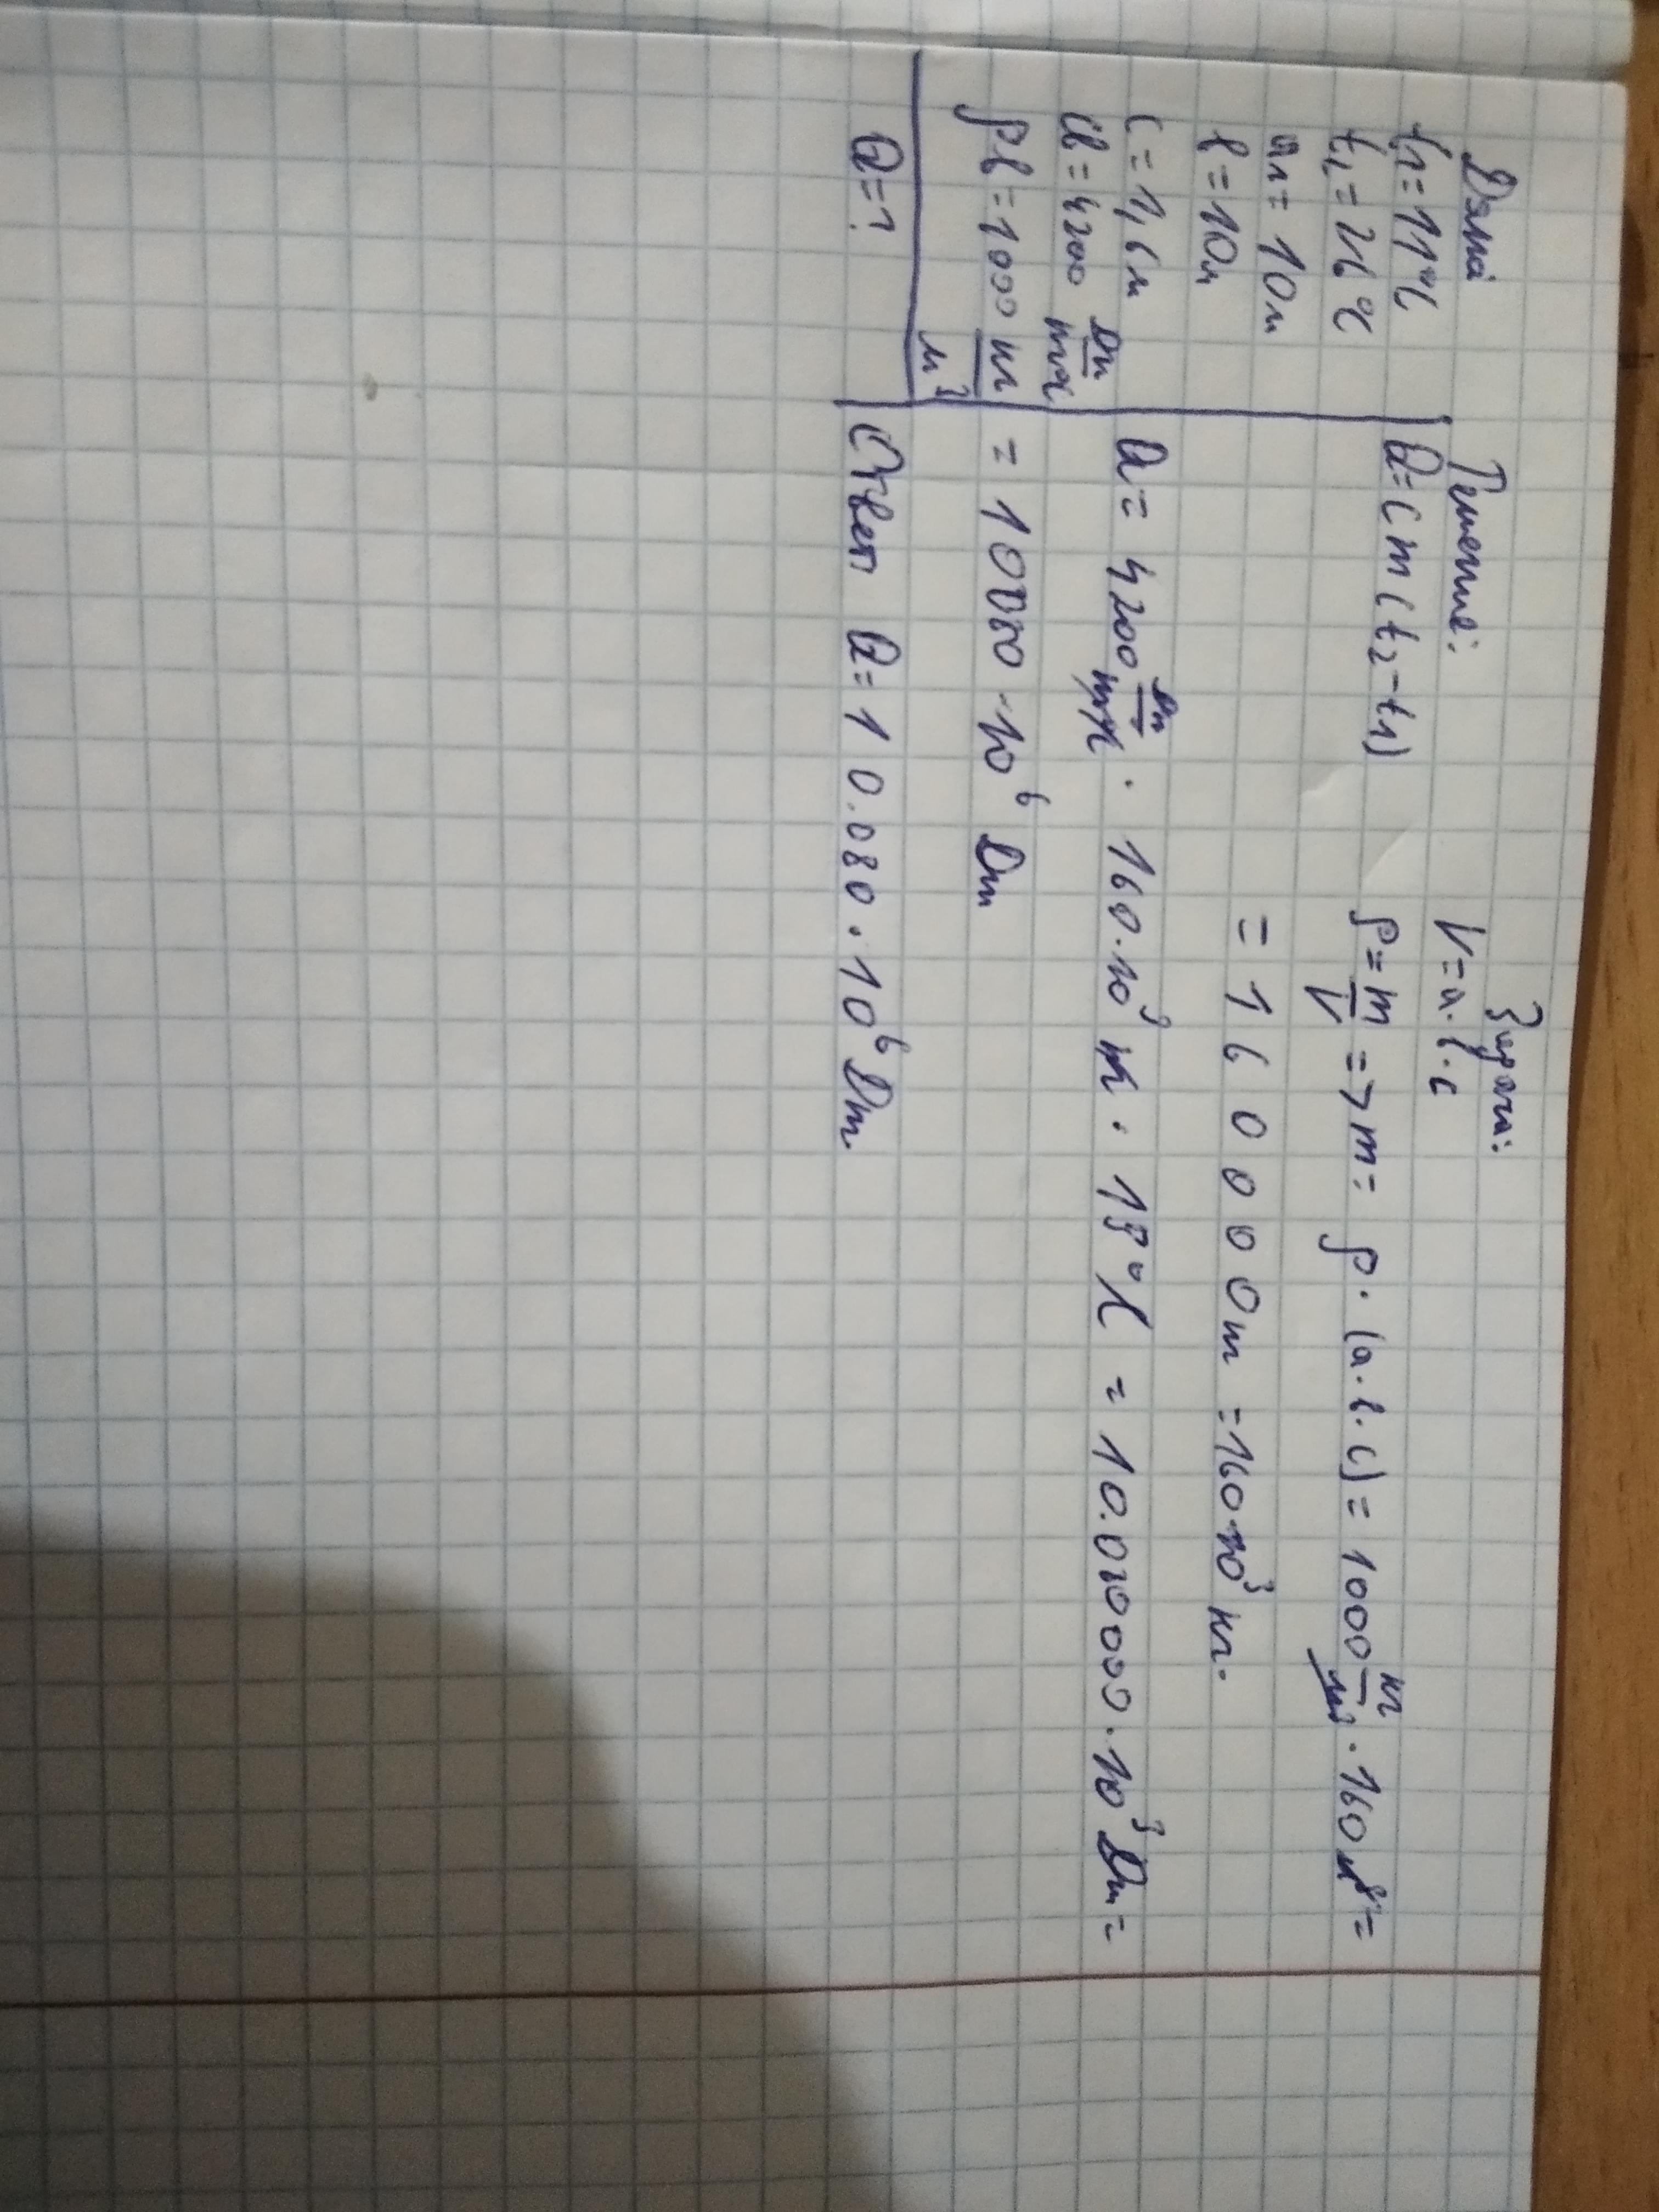 Дано
t₁=11°C
t₂=26°C
a=10м
b=10м
c=1,6м
cв=4200 Дж/кг°C
ρв=1000 кг/м³
Q=?
Решение:
Q=cm(t₂-t₁)
V=a·b·c
ρ=m/V => m= ρ·(a·b·c)=1000 кг/м³·160м³=
=160000кг=160·10³кг.
Q=4200 Дж/кг°C·160·10³кг·15°C=10.080000·10³Дж=
=10080·10⁶Дж
Ответ Q=10.080·10⁶Дж.